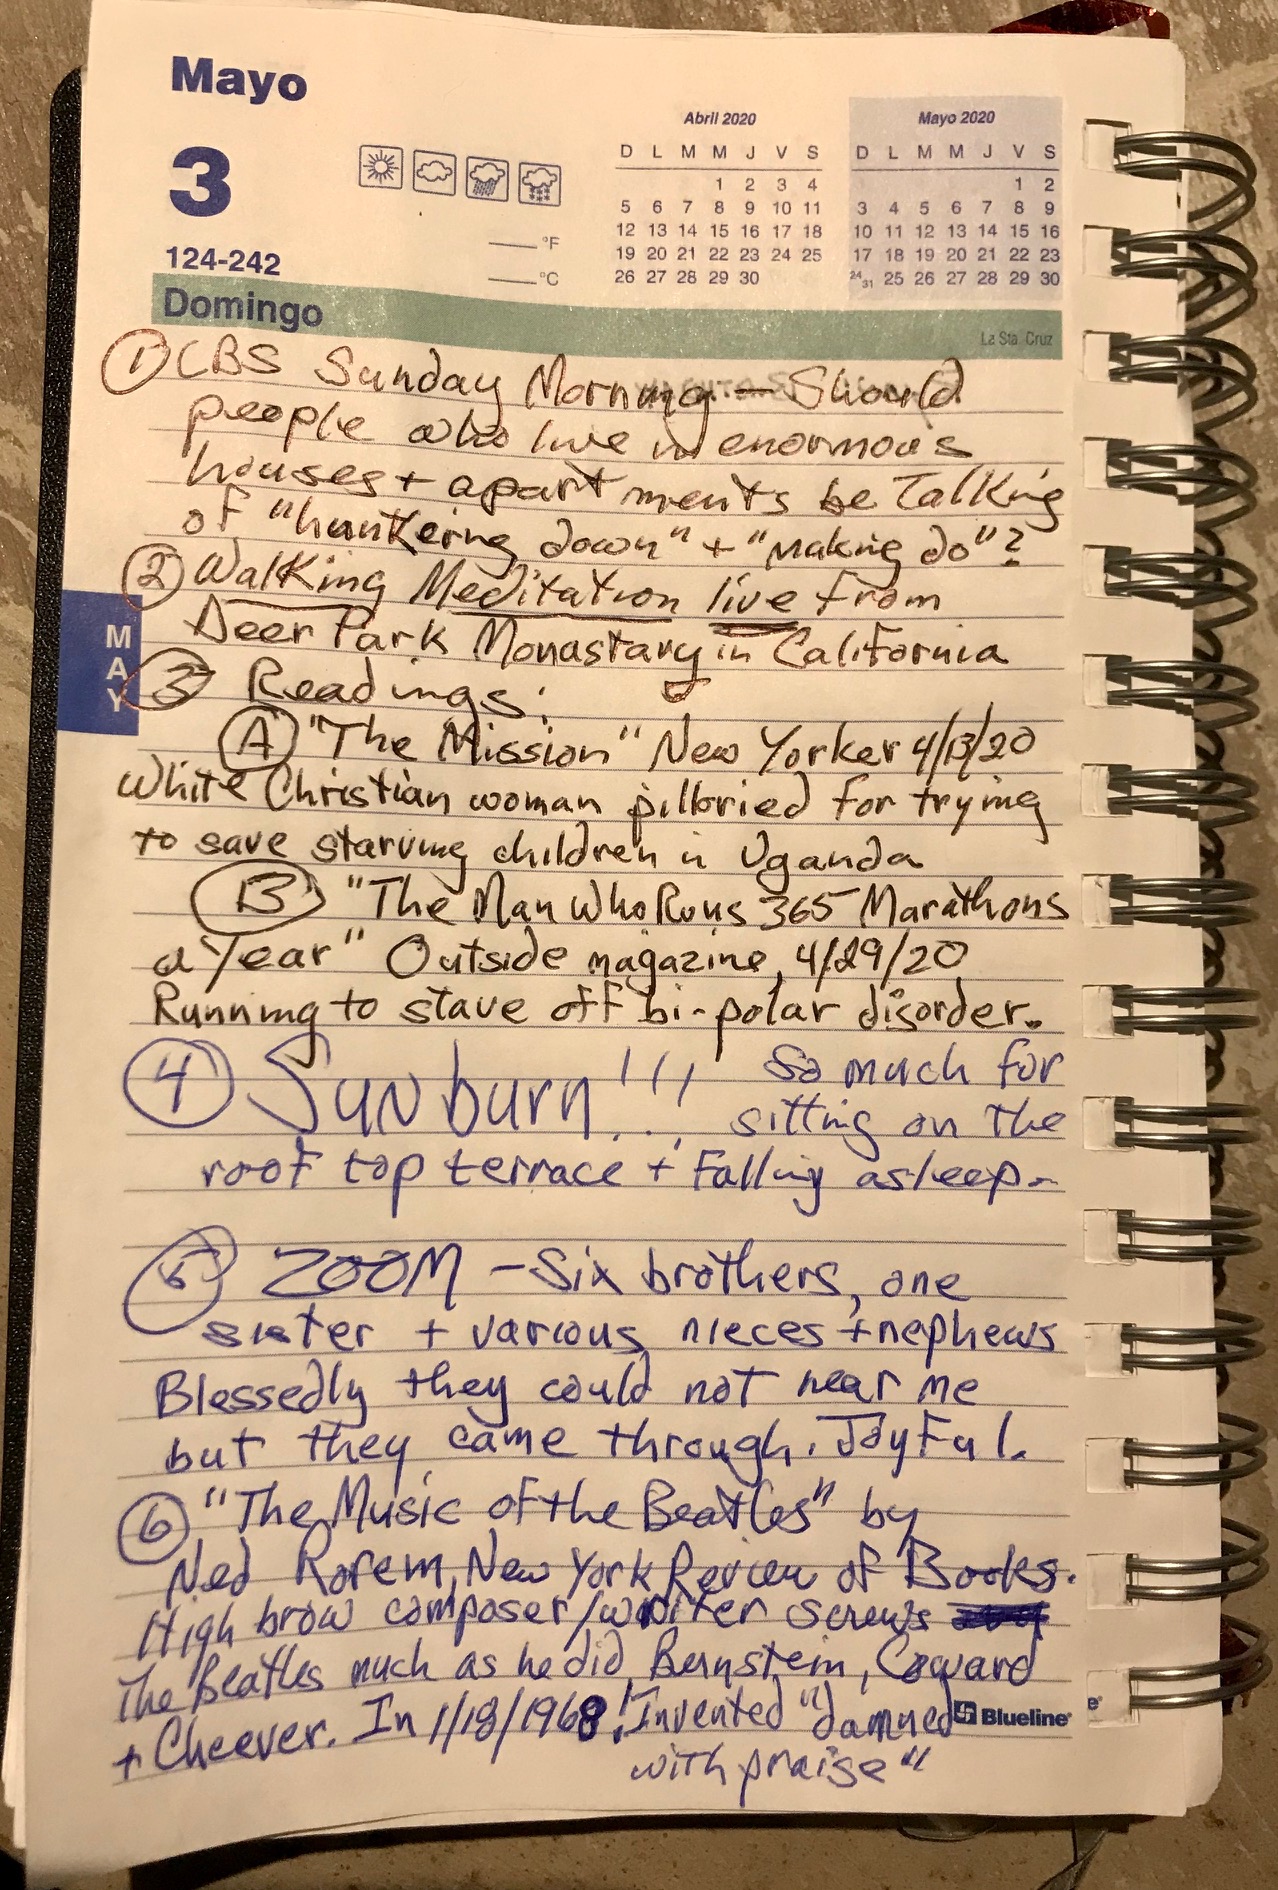 Mayo
3
124-242
Domingo
°F
°C
Abril 2020
D L M M J V S
1 2 3 4
5 6 7 8 9 10 11
12 13 14 15 16 17 18
19 20 21 22 23 24 25
26 27 28 29 30
Mayo 2020
D L M M J V S
1 2
3 4 5 6 7 8 9
10 11 12 13 14 15 16
17 18 19 20 21 22 23
24/31 25 26 27 28 29 30
La Sta. Cruz
① CBS Sunday Morning — Should
people who live in enormous
houses + apartments be Talking
of "hunkering down" + "making do"?
② Walking Meditation live from
Deer Park Monastary in California
MAY
③ Readings:
Ⓐ "The Mission" New Yorker 4/13/20
White Christian woman pilloried for trying
to save starving children in Uganda
Ⓑ "The Man Who Runs 365 Marathons
a Year" Outside magazine, 4/29/20
Running to stave off bi-polar disorder.
④ Sunburn!!! So much for
sitting on the
roof top terrace + Falling asleep.
⑤ ZOOM – Six brothers, one
sister + various nieces + nephews
Blessedly they could not near me
but they came through. JoyFul.
⑥ "The Music of the Beatles" by
Ned Rorem, New York Review of Books.
High brow composer/writer screws
The Beatles much as he did Bernstein, Coward
+ Cheever. In 1/18/1968! Invented "damned
with praise"
Blueline®